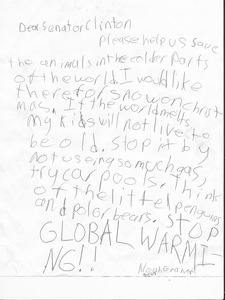 Dear Senator Clinton
Please help us save
the animals in the colder parts
of the world. I would like
there to snow on christ
mas. If the world melts
my kids will not live to
be old. Stop it by
not useing so much gas,
try car pools. Think
of the littel penguins
and polar bears. STOP
GLOBAL WARMI-
NG!!